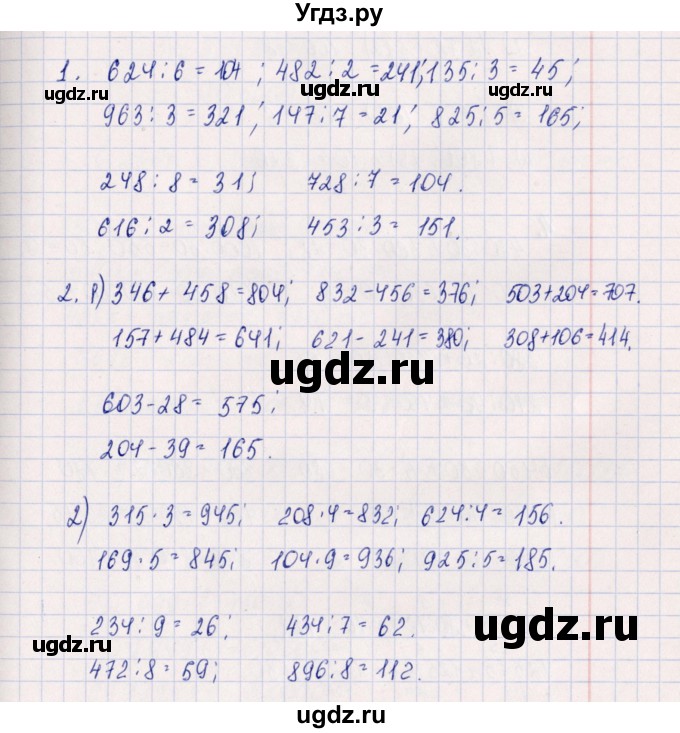 Угдз.ру
1. 624:6=104; 482:2=241; 135:3=45;
ugdz.ru ugdz.ru ugdz.ru
963:3=321; 147:7=21; 825:5=165;
248:8=31; 728:7=104.
616:2=308; 453:3=151.
2. 1) 346+458=804; 832-456=376; 503+204=707.
157+484=641; 621-241=380; 308+106=414.
ugdz.ru ugdz.ru
603-28=575;
204-39=165.
2) 315·3=945; 208·4=832; 624:4=156.
169·5=845; 104·9=936; 925:5=185.
234:9=26; 434:7=62.
ugdz.ru ugdz.ru ugdz.ru
472:8=59; 896:8=112.
ugdz.ru